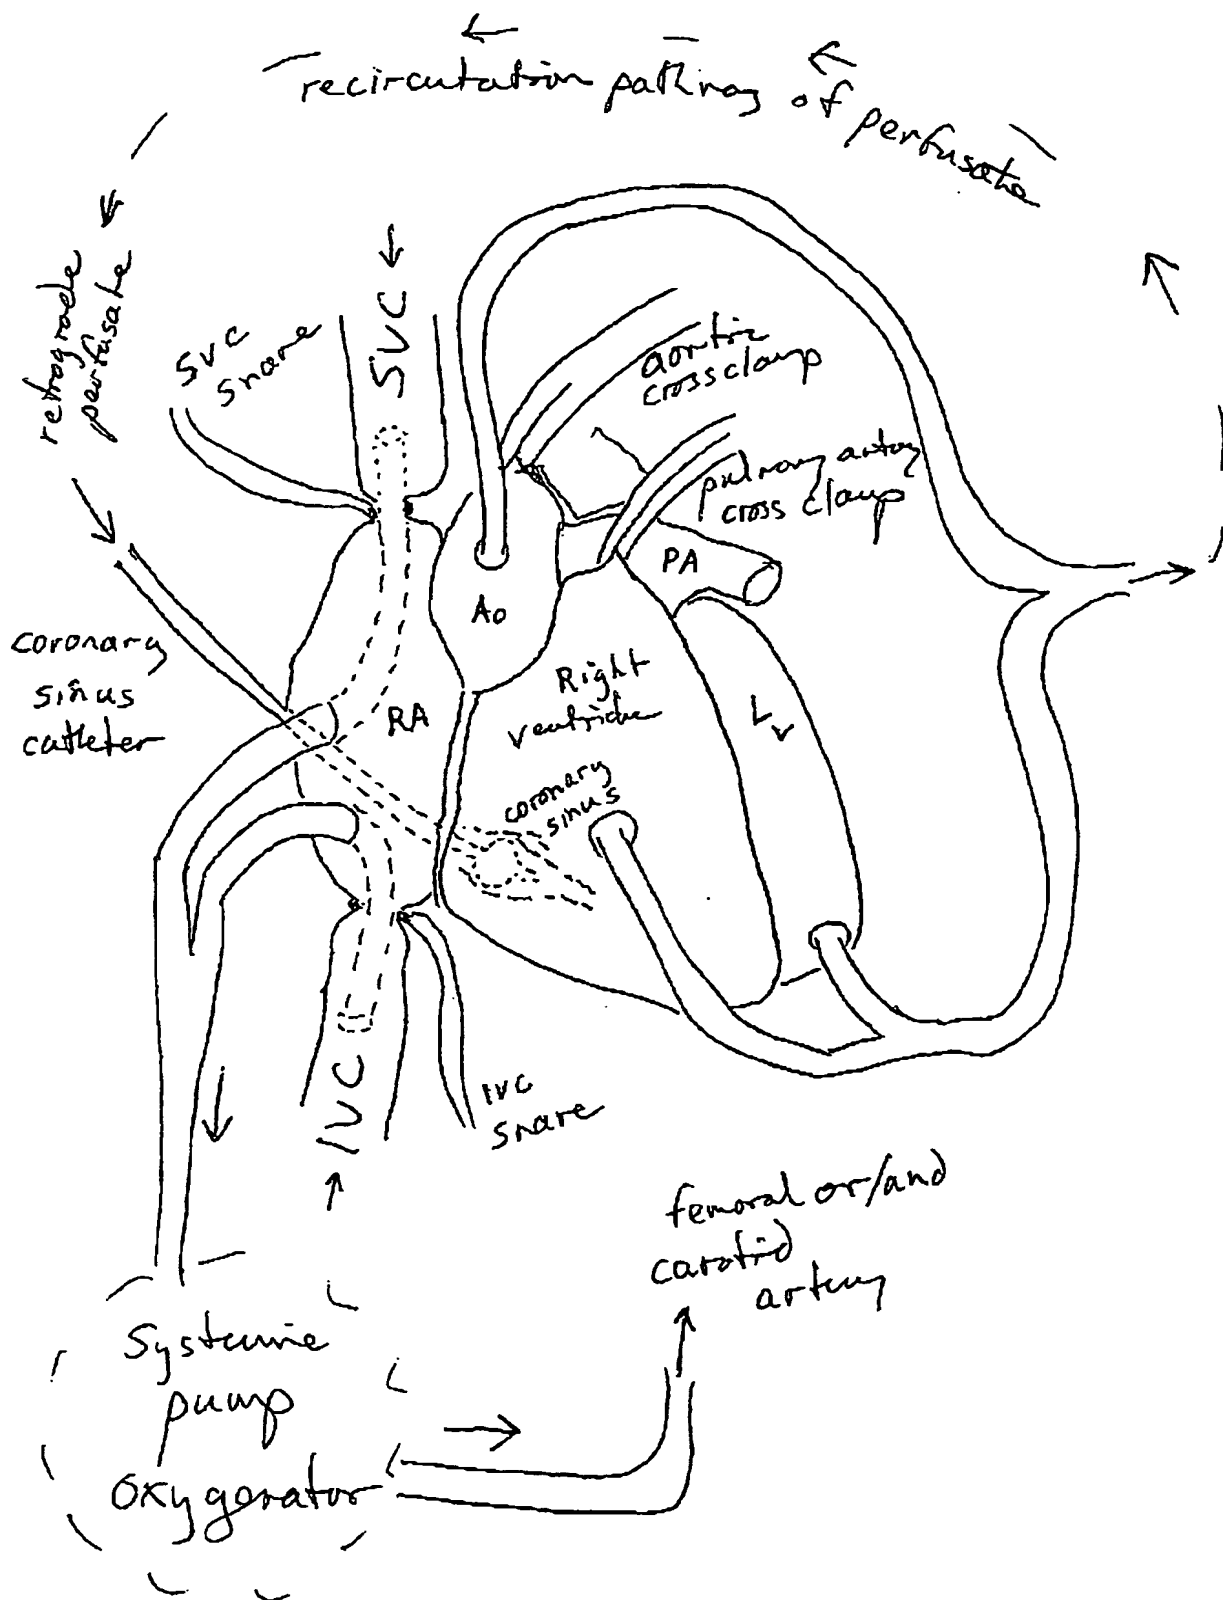 recirculation pathway of perfusate
retrograde
perfusate
SVC
SVC
snare
aortic
crossclamp
pulmonary artery
cross clamp
PA
Ao
coronary
sinus
catheter
RA
Right
ventricle
Lv
coronary
sinus
IVC
IVC
snare
femoral or/and
carotid
artery
Systemic
pump
oxygenator